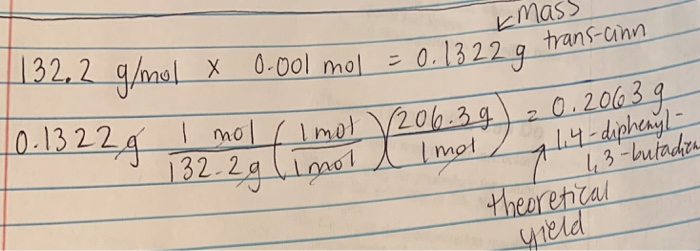 mass
132.2 g/mol x 0.001 mol = 0.1322 g trans-cinn
0.1322 g 1 mol / 132.2 g (1 mol / 1 mol) (206.3 g / 1 mol) = 0.2063 g
1,4-diphenyl-
1,3-butadien
theoretical
yield